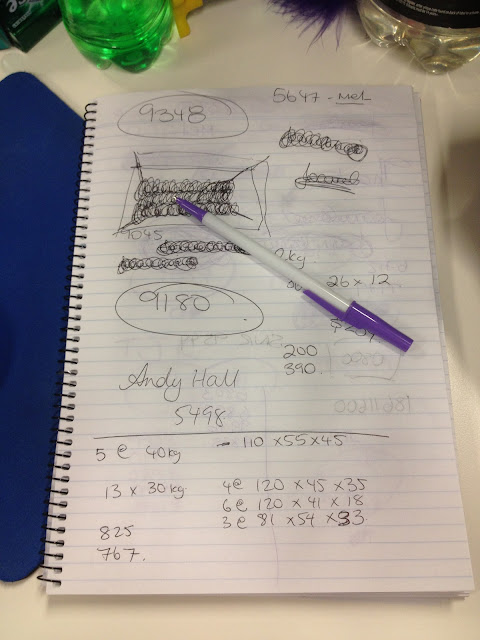 5647 - Mel
9348
9045
kg
26 x 12
9180
200
390.
Andy Hall
5498
5 @ 40kg - 110 x 55 x 45
13 x 30 kg. 4@ 120 x 45 x 35
6@ 120 x 41 x 18
3@ 81 x 54 x 33
825
767.